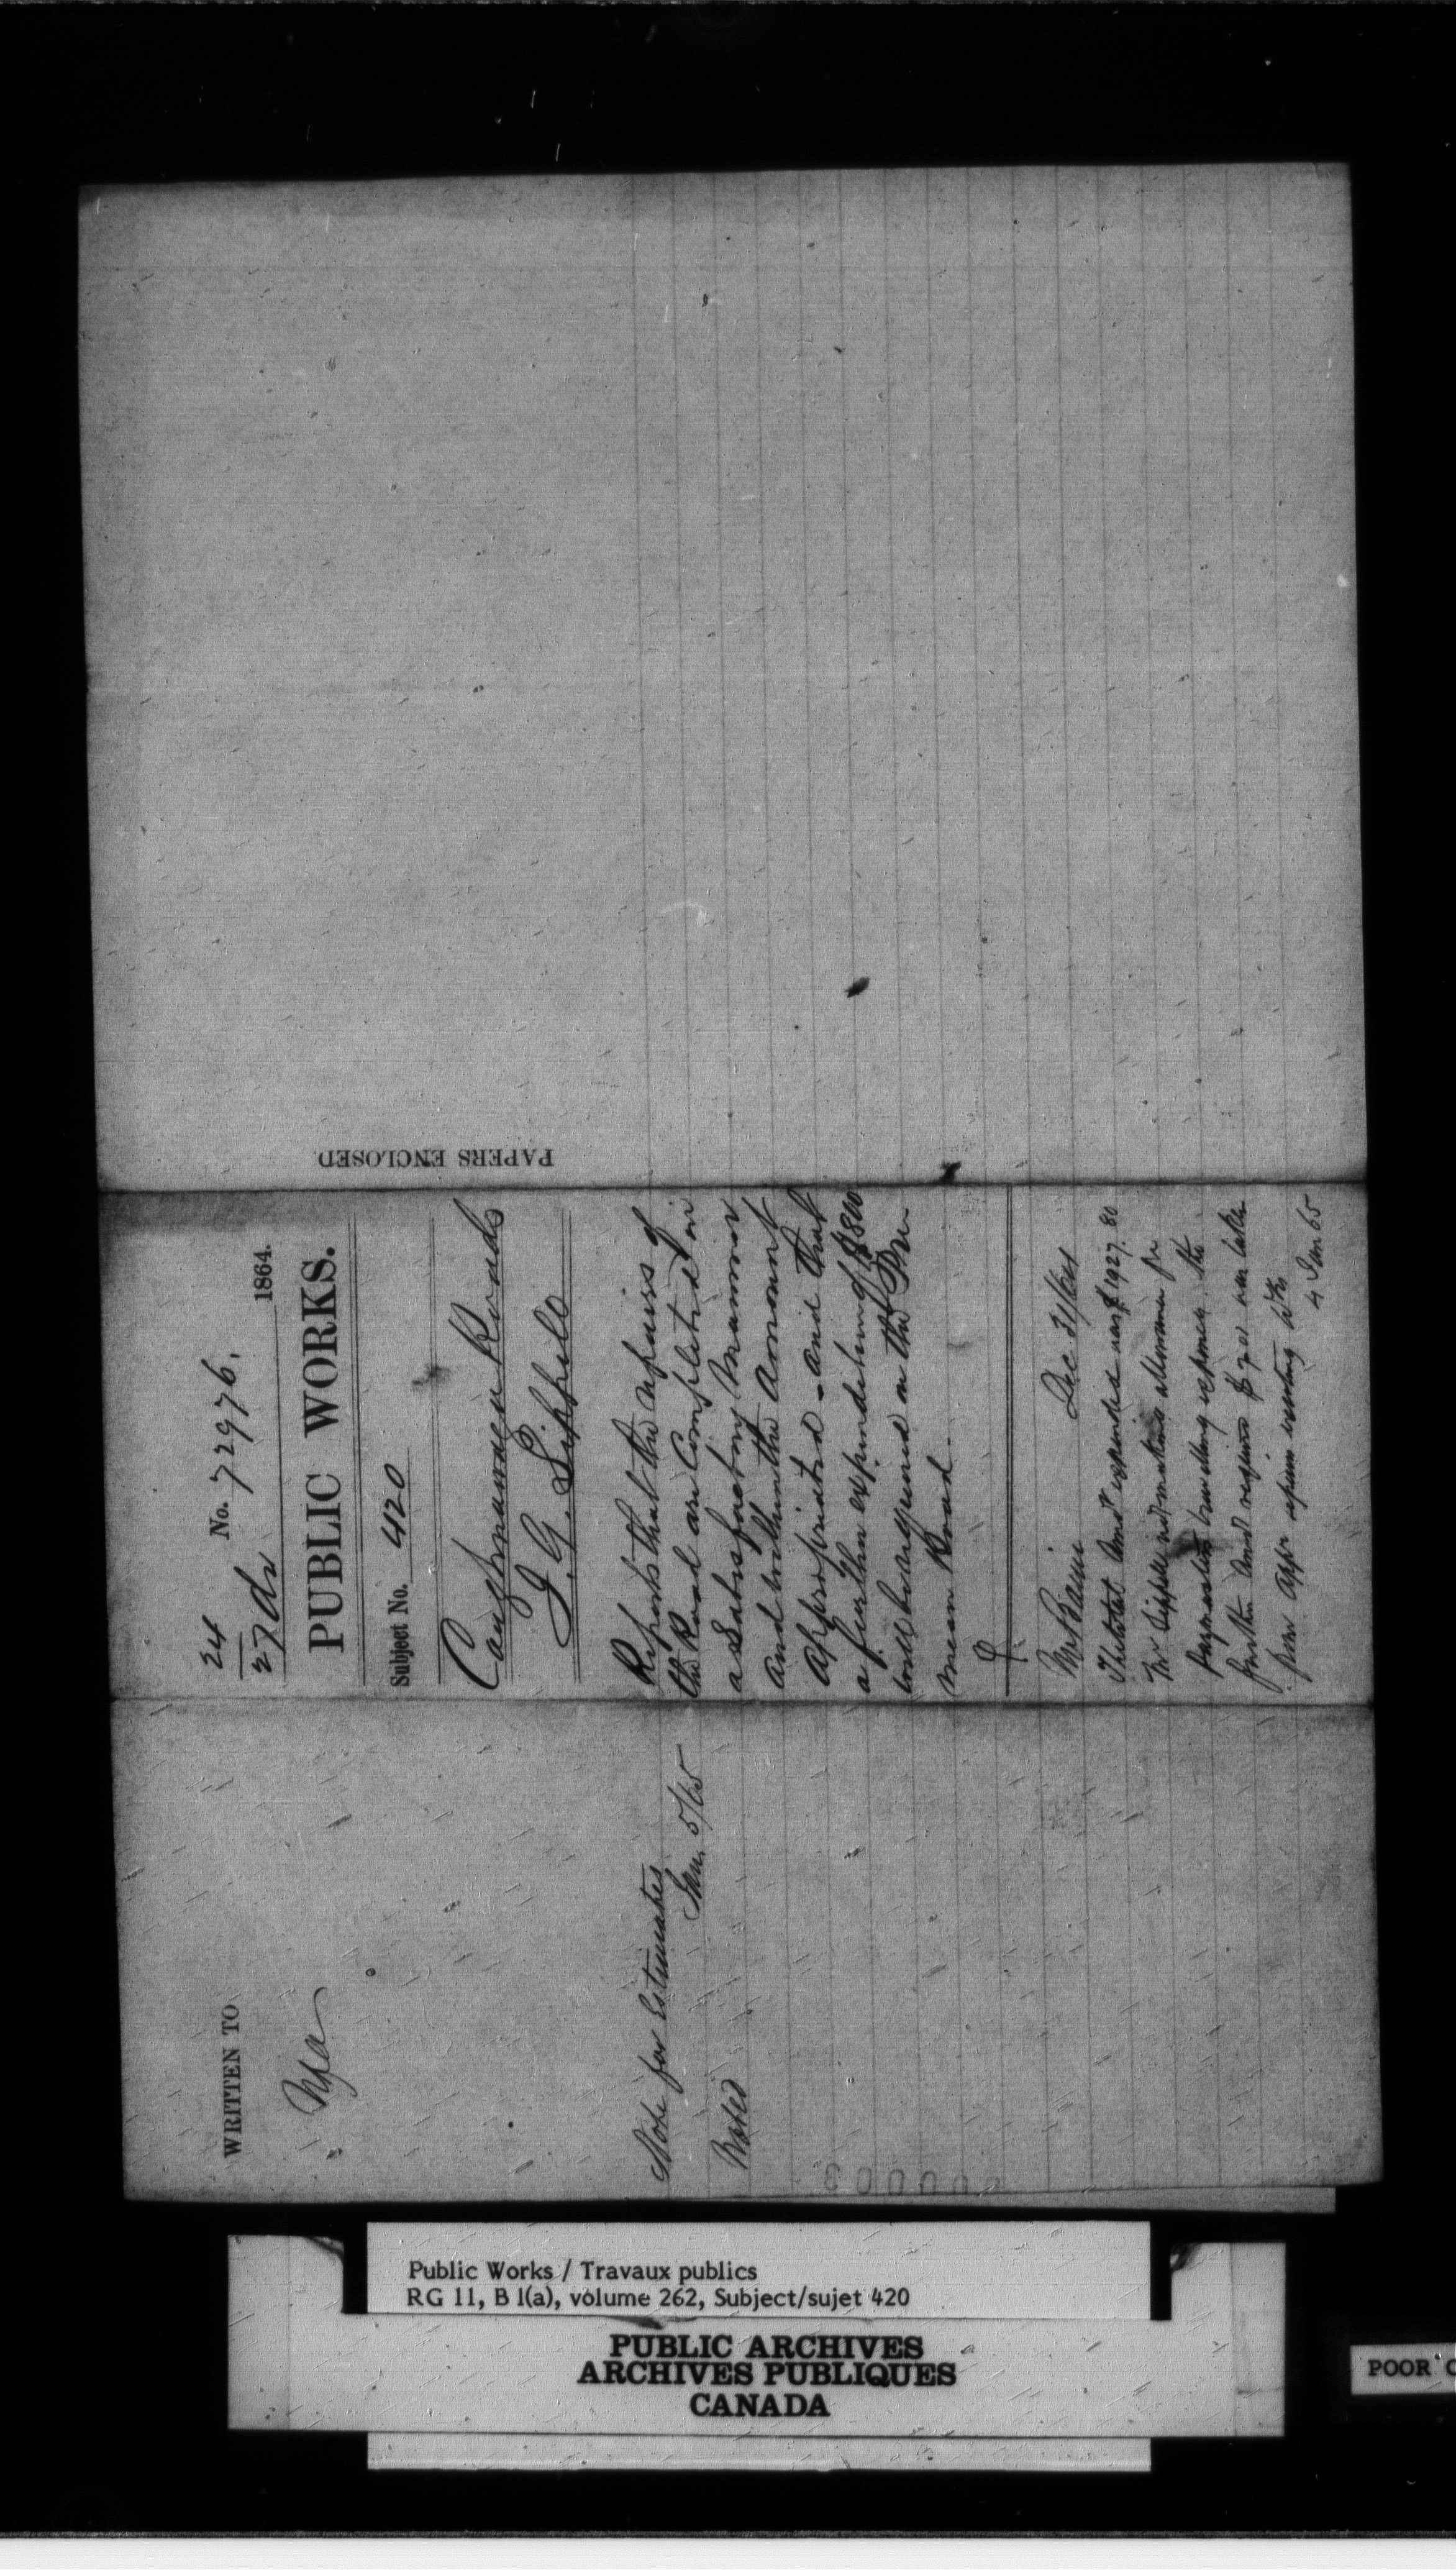 24
27 Dr No. 72976. 1864.
PUBLIC WORKS.
Subject No. 420
Caughnawaga Roads
J. G. Sippell
Reports that the repairs of
the Road are Completed in
a Satisfactory manner
and within the Amount
appropriated - and that
a further expenditure of $800
will be required on the
Road.
Mr Baine Dec 31/64
The total amt expended was $1927.80
Mr Sippell not making allowance for
travelling expenses. the
further amt required $
4 Jan 65
PAPERS ENCLOSED
WRITTEN TO
Note for Estimates
Jan. 5/65
Noted
Public Works / Travaux publics
RG 11, B 1(a), volume 262, Subject/sujet 420
PUBLIC ARCHIVES
ARCHIVES PUBLIQUES
CANADA
POOR